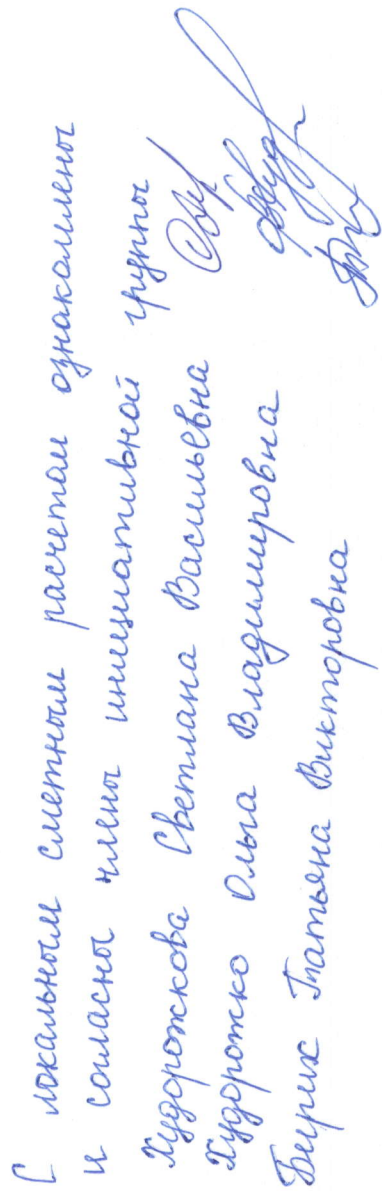 С локальным сметным расчетом ознакомлены
и согласны члены инициативной группы
Худорожкова Светлана Васильевна
Худорожко Ольга Владимировна
Бирих Татьяна Викторовна